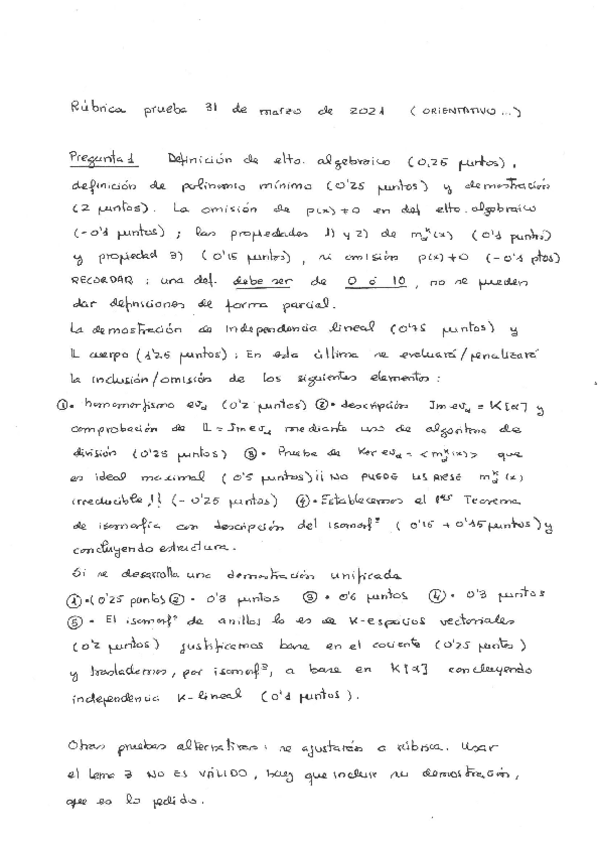 Rúbrica prueba 31 de marzo de 2021 (ORIENTATIVO...)
Pregunta 1 Definición de elto. algebraico (0'25 puntos),
definición de polinomio mínimo (0'25 puntos) y demostración
(2 puntos). La omisión de p(x)≠0 en def elto. algebraico
(-0'1 puntos); las propiedades 1) y 2) de m_α^K(x) (0'1 puntos)
y propiedad 3) (0'15 puntos), si omisión p(x)≠0 (-0'1 ptos)
RECORDAR: una def. debe ser de 0 ó 10, no se pueden
dar definiciones de forma parcial.
La demostración de independencia lineal (0'75 puntos) y
𝕃 cuerpo (1'25 puntos); En esta última se evaluará/penalizará
la inclusión/omisión de los siguientes elementos:
①• homomorfismo ev_α (0'2 puntos) ②• descripción Im ev_α = K[α] y
comprobación de 𝕃 = Im ev_α mediante uso de algoritmo de
división (0'25 puntos) ③• Prueba de Ker ev_α = <m_α^K(x)> que
es ideal maximal (0'5 puntos) ¡¡NO PUEDE USARSE m_α^K(x)
irreducible!! (-0'25 puntos) ④• Establecemos el 1er Teorema
de isomorfía con descripción del isomorfº (0'15 + 0'15 puntos) y
concluyendo estructura.
Si se desarrolla una demostración unificada
①•(0'25 puntos) ②• 0'3 puntos ③• 0'6 puntos ④• 0'3 puntos
⑤• El isomorfº de anillos lo es de K-espacios vectoriales
(0'2 puntos) justificamos base en el cociente (0'25 puntos)
y trasladamos, por isomorfº, a base en K[α] concluyendo
independencia K-lineal (0'1 puntos).
Otras pruebas alternativas: se ajustarán a rúbrica. Usar
el lema 3 NO ES VÁLIDO, hay que incluir su demostración,
que es lo pedido.